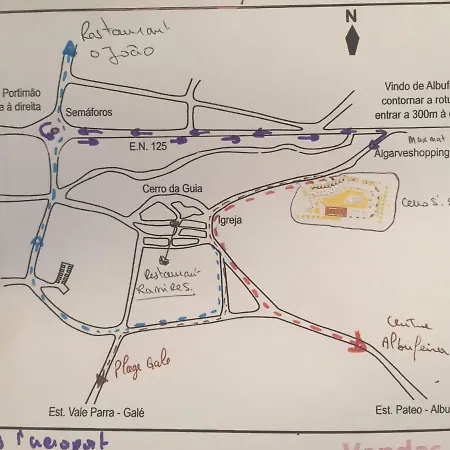 Restaurant
O João
N
Portimão
a à direita
Semáforos
Vindo de Albufe
contornar a rotu
entrar a 300m à
E.N. 125
Algarveshopping
Cerro da Guia
Igreja
Restaurant
Ramires.
Plage Galé
Centre
Albufeira
Est. Vale Parra - Galé
Est. Pateo - Albu
l'aeroport